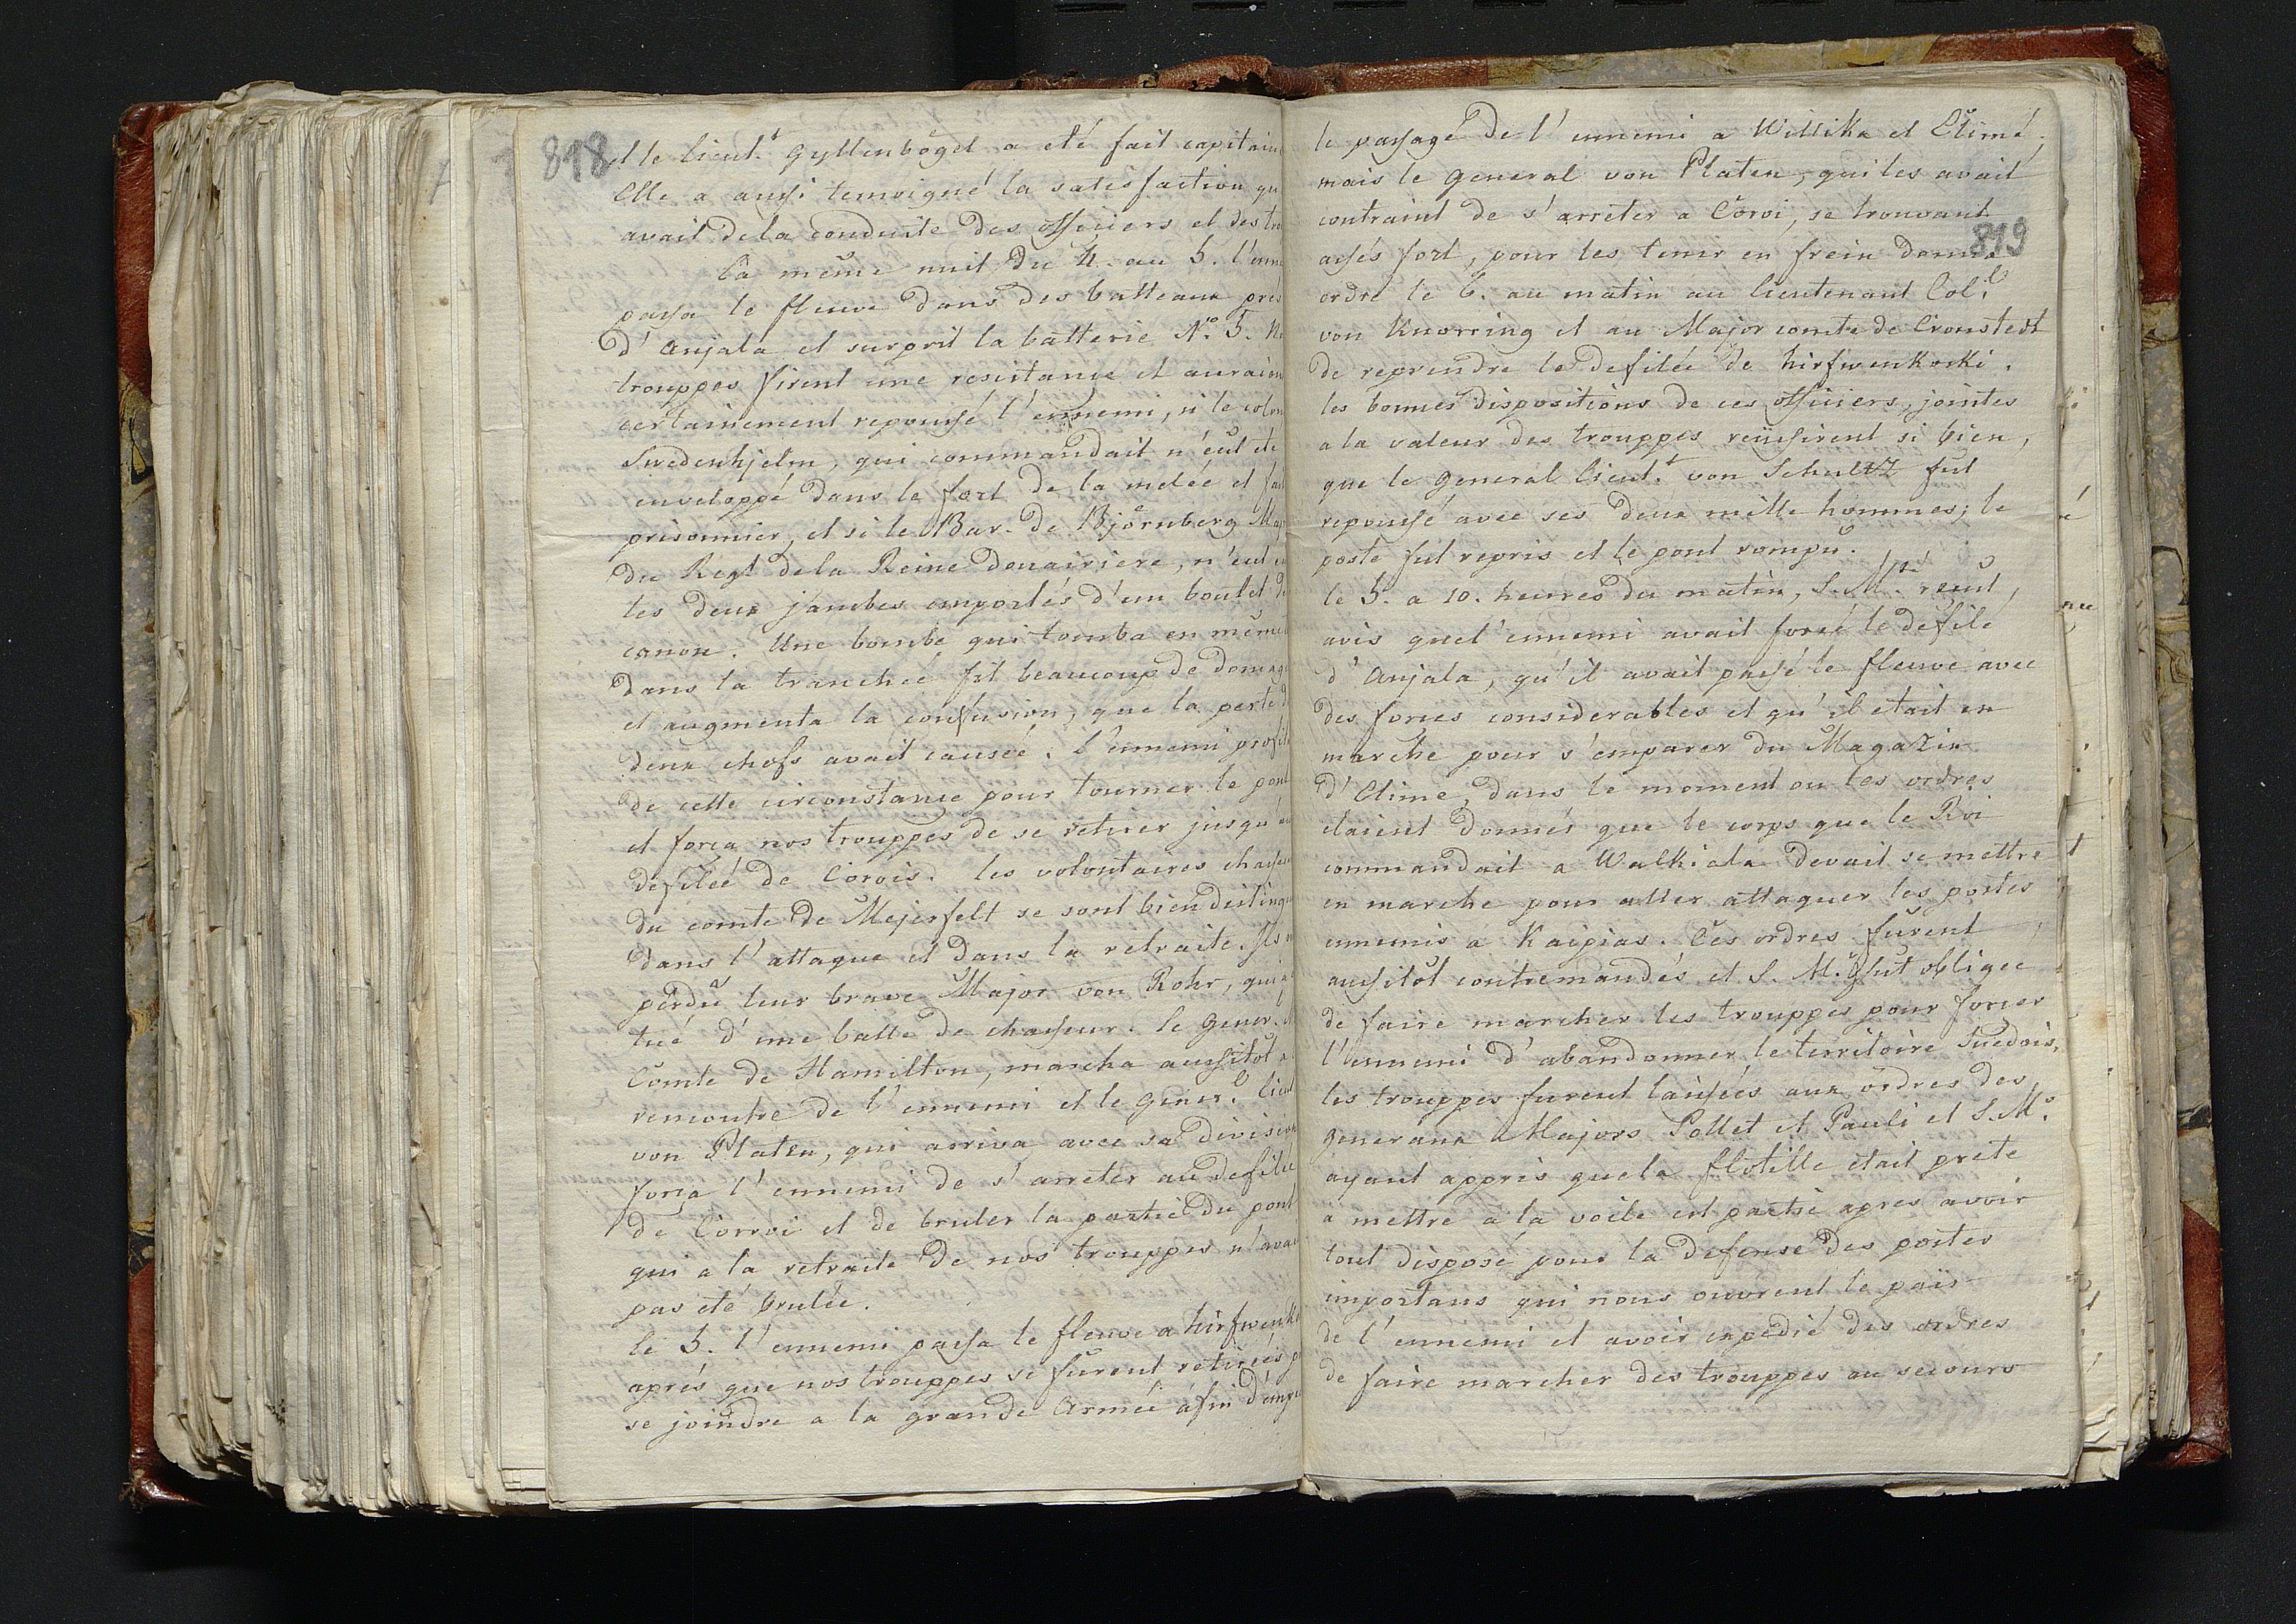 818
et le Lieut.t Gyllenbögel a eté fait capitain
Elle a aussi temoigné la satisfaction qu
avait de la conduite des officiers et des tr
La même nuit du 4. au 5. l'enne
passa le fleuve dans des batteaux prés
d'Anjala et surprit la batterie N.ro 5. No
trouppes firent une resistance et auraien
certainement repoussé l'ennemi, si le colon
Swedenhjelm, qui commandait n'eût eté
enveloppé dans le fort de la melée et fait
prisonnier, et si le Bar. de Björnberg Maj
du Regt de la Reine Douairiere, n'eut eu
les deux jambes emportés d'un boulet de
canon. Une bombe qui tomba en même
dans la tranchée fit beaucoup de domage
et augmenta la confusion, que la perte d
deux chefs avait causée. l'ennemi profit
de cette circonstance pour tourner le pont
et força nos trouppes de se retirer jusqu'au
défilée de Corois. les volontaires chasseu
du comte de Mejerfelt se sont bien disting
dans l'attaque et dans la retraite. Ils
perdû leur brave Major von Rohr, qui a
tué d'une balle de chasseur. le Gener.
Comte de Hamilton, marcha aussitôt a
rencontre de l'ennemi et le Gener.l Lieut
von Platen, qui arriva avec sa division
força l'ennemi de s'arreter au defilée
de Corroi et de bruler la partie du pont
qui a la retraite de nos trouppes n'avai
pas eté brulée.
le 5. l'ennemi passa le fleuve a hirfwenko
aprés que nos trouppes se furent retirées p
se joindre a la grande Armée afin d'empe
819
le passage de l'ennemi a Willika et Elimé.
mais le General von Platen, qui les avait
contraint de s'arreter a Coroi, se trouvant
assés fort, pour les tenir en frein donna
ordre le 6. au matin au lieutenant Col.l
von Knorring et au Major comte de Cronstedt
de reprendre le defilée de hirfwenkoski.
les bonnes dispositions de ces officiers, jointes
a la valeur des trouppes reüssirent si bien,
que le General Lieut.t von Schultz fut
repoussé avec ses deux mille hommes; le
poste fut repris et le pont rompu.
le 5. a 10. heures du matin, S. M. reçut
avis que l'ennemi avait forcé le defilé
d'Anjala, qu'il avait passé le fleuve avec
des forces considerables et qu'il etait en
marche pour s'emparer du Magazin
d'Elime, dans le moment ou les ordres
etaient donnés que le corps que le Roi
commandait a Walkiala devait se mettre
en marche pour aller attaquer les postes
ennemis a Kaipias. Ces ordres furent
aussitôt contremandés et S. M. fut obligee
de faire marcher les trouppes pour forcer
l'ennemi d'abandonner le territoire Suedois.
les trouppes furent laissées aux ordres des
generaux Majors Pollet et Pauli et S. M.
ayant appris que la flotille etait prete
a mettre a la voile est partie apres avoir
tout disposé pour la defense des postes
importans qui nous ouvrent le païs
de l'ennemi et avoir expedié des ordres
de faire marcher des trouppes au secours